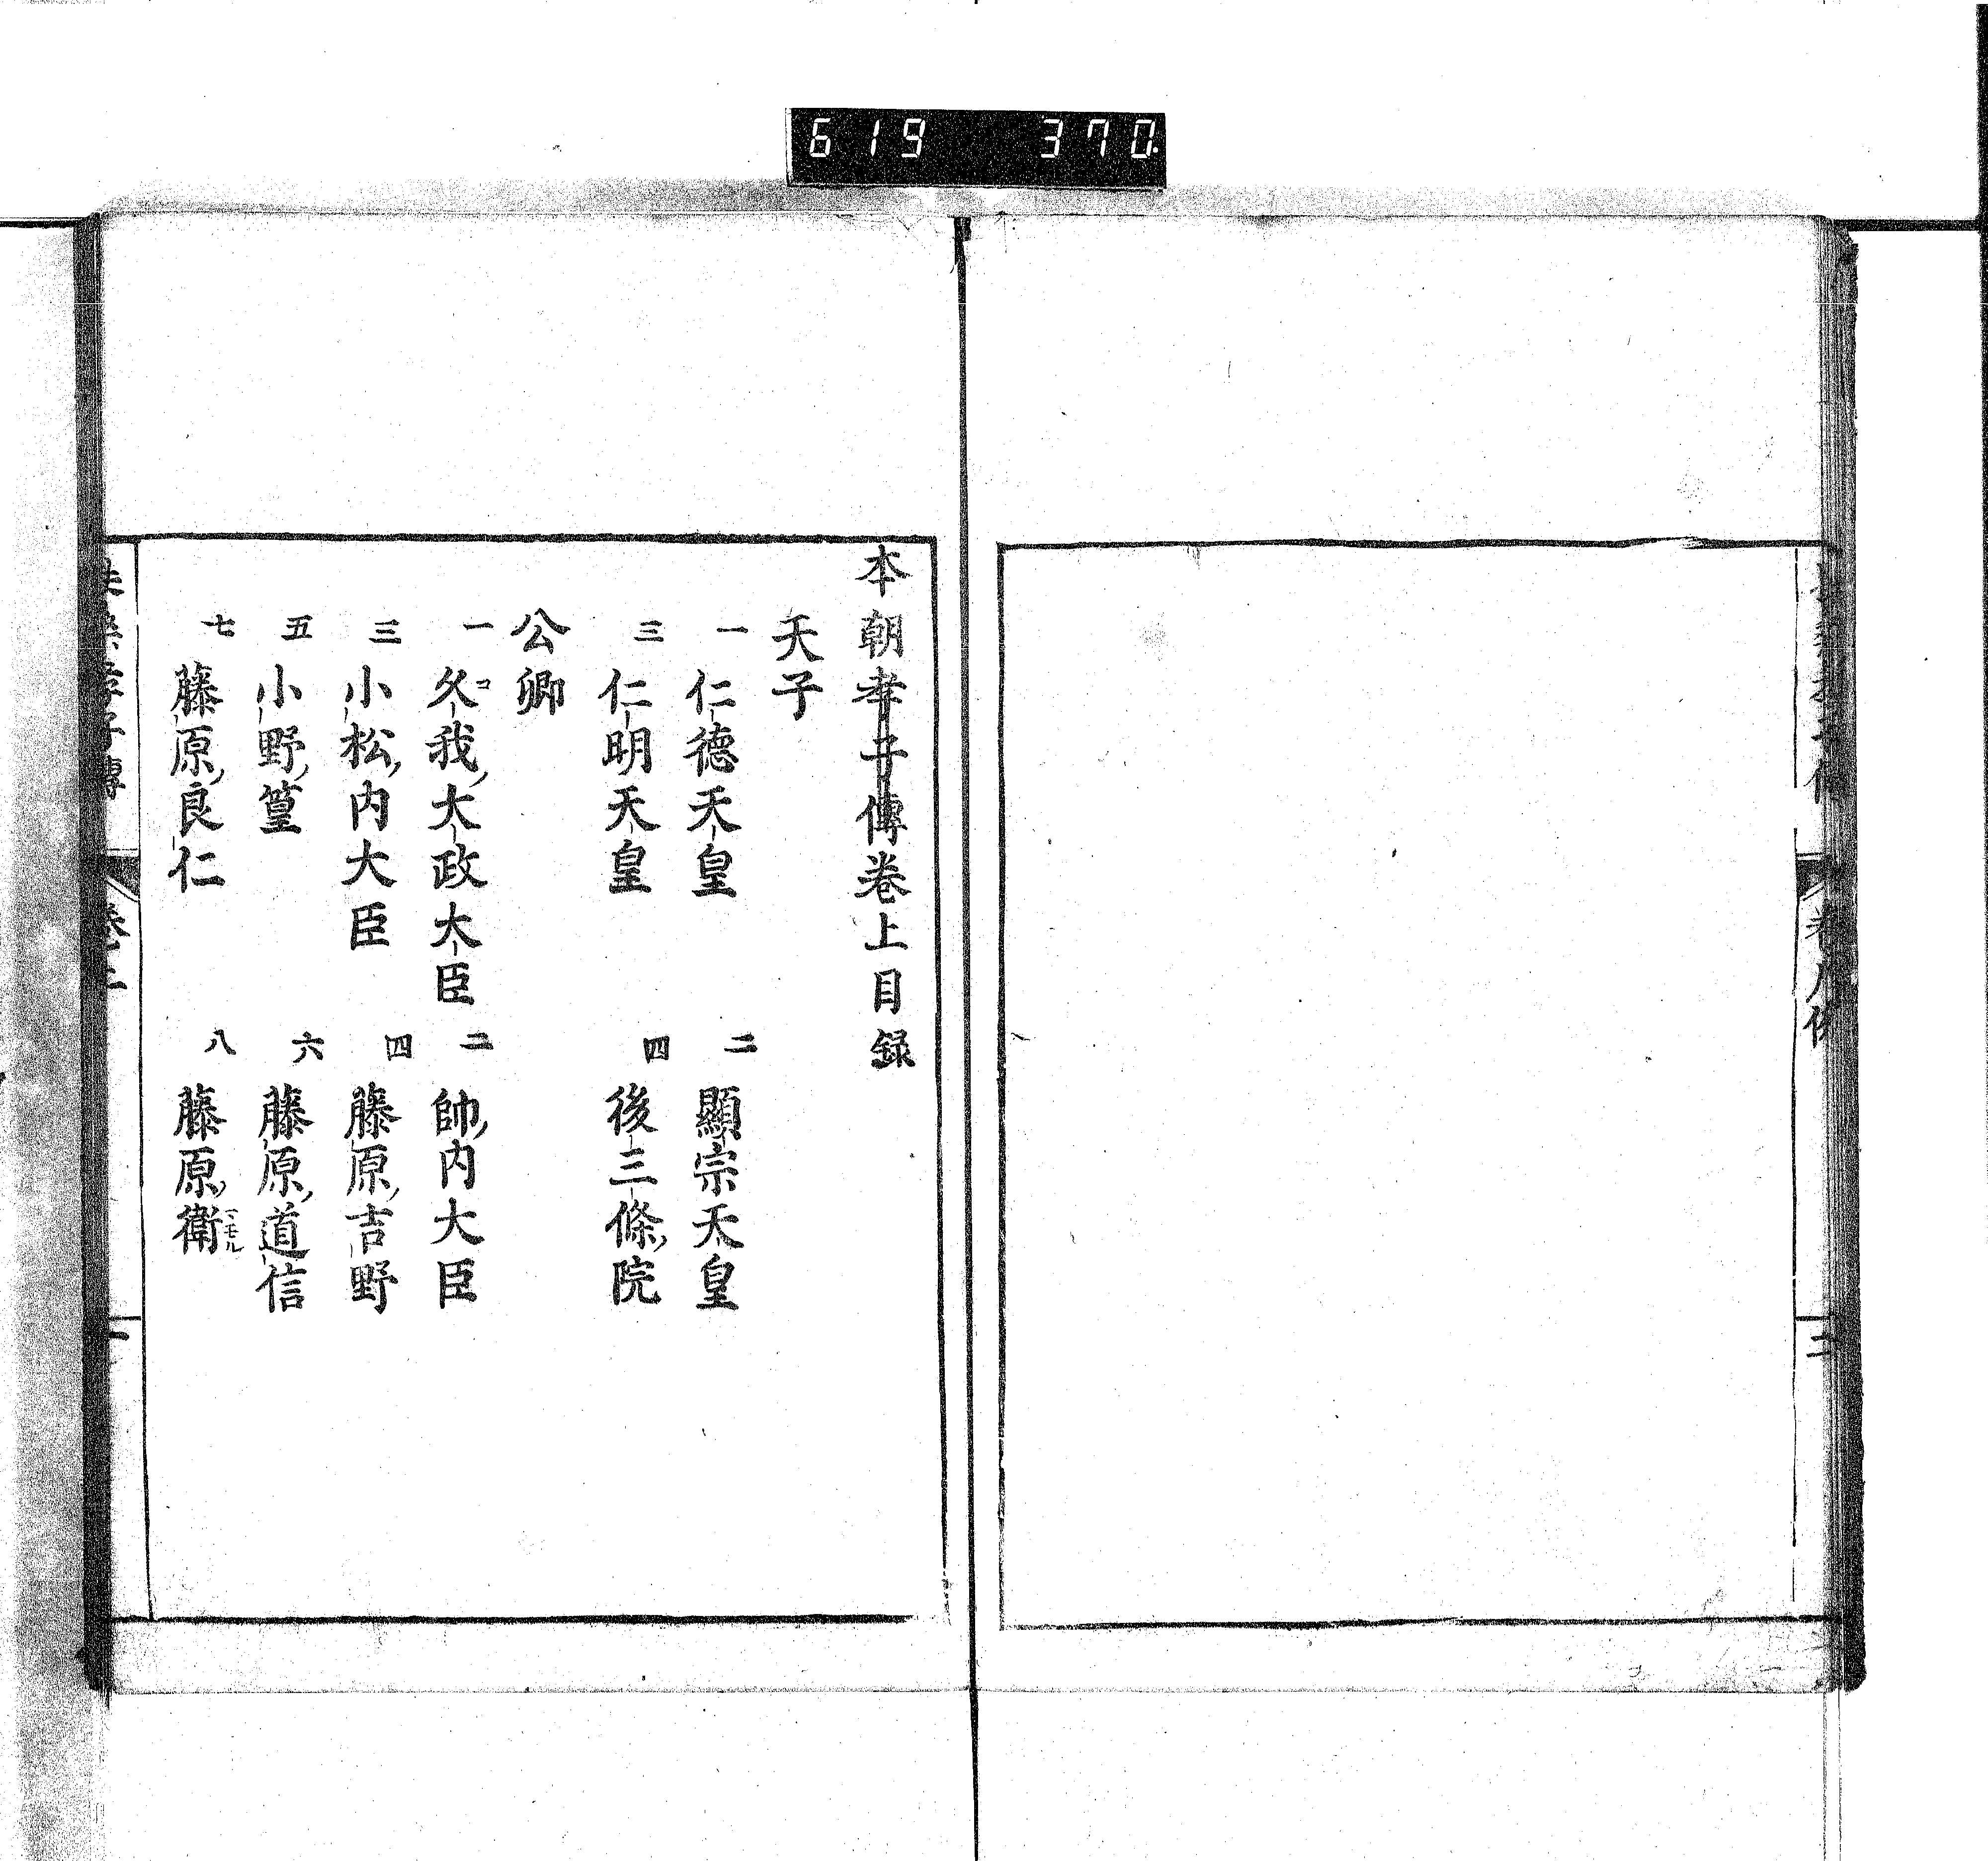 619 370.
本朝孝子傳卷上目録
天子
一 仁德天皇
二 顯宗天皇
三 仁明天皇
四 後三條院
公卿
一 久我大政大臣
コ
二 帥内大臣
三 小松内大臣
四 藤原吉野
五 小野篁
六 藤原道信
七 藤原良仁
八 藤原衛
マモル
二